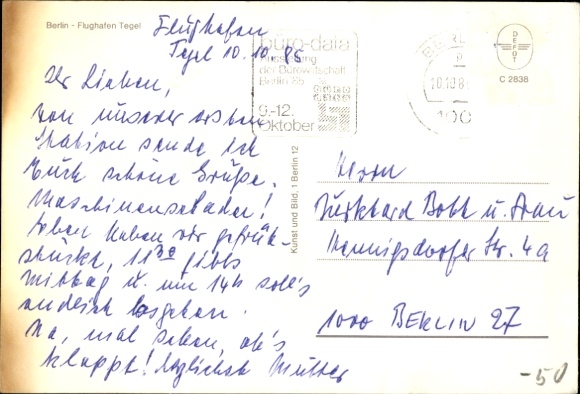 Berlin - Flughafen Tegel
Flughafen
Tegel 10.10.85
Ihr Lieben,
von unserer ersten
Station sende ich
Euch schöne Grüße.
Maschinenschaden!
Eben haben wir gefrüh-
stückt, 11³⁰ gibts
Mittag u. um 14h soll's
endlich losgehen.
Na, mal sehen, ob's
klappt! Herzlichst Mutter
büro-data
Ausstellung
der Bürowirtschaft
Berlin 85
9.-12.
Oktober
BERLIN
10.10.8
100
DEFOT
C 2838
Kunst und Bild, 1 Berlin 12
Herrn
Burkhard u. Frau
Hennigsdorfer Str. 4a
1000 BERLIN 27
-50